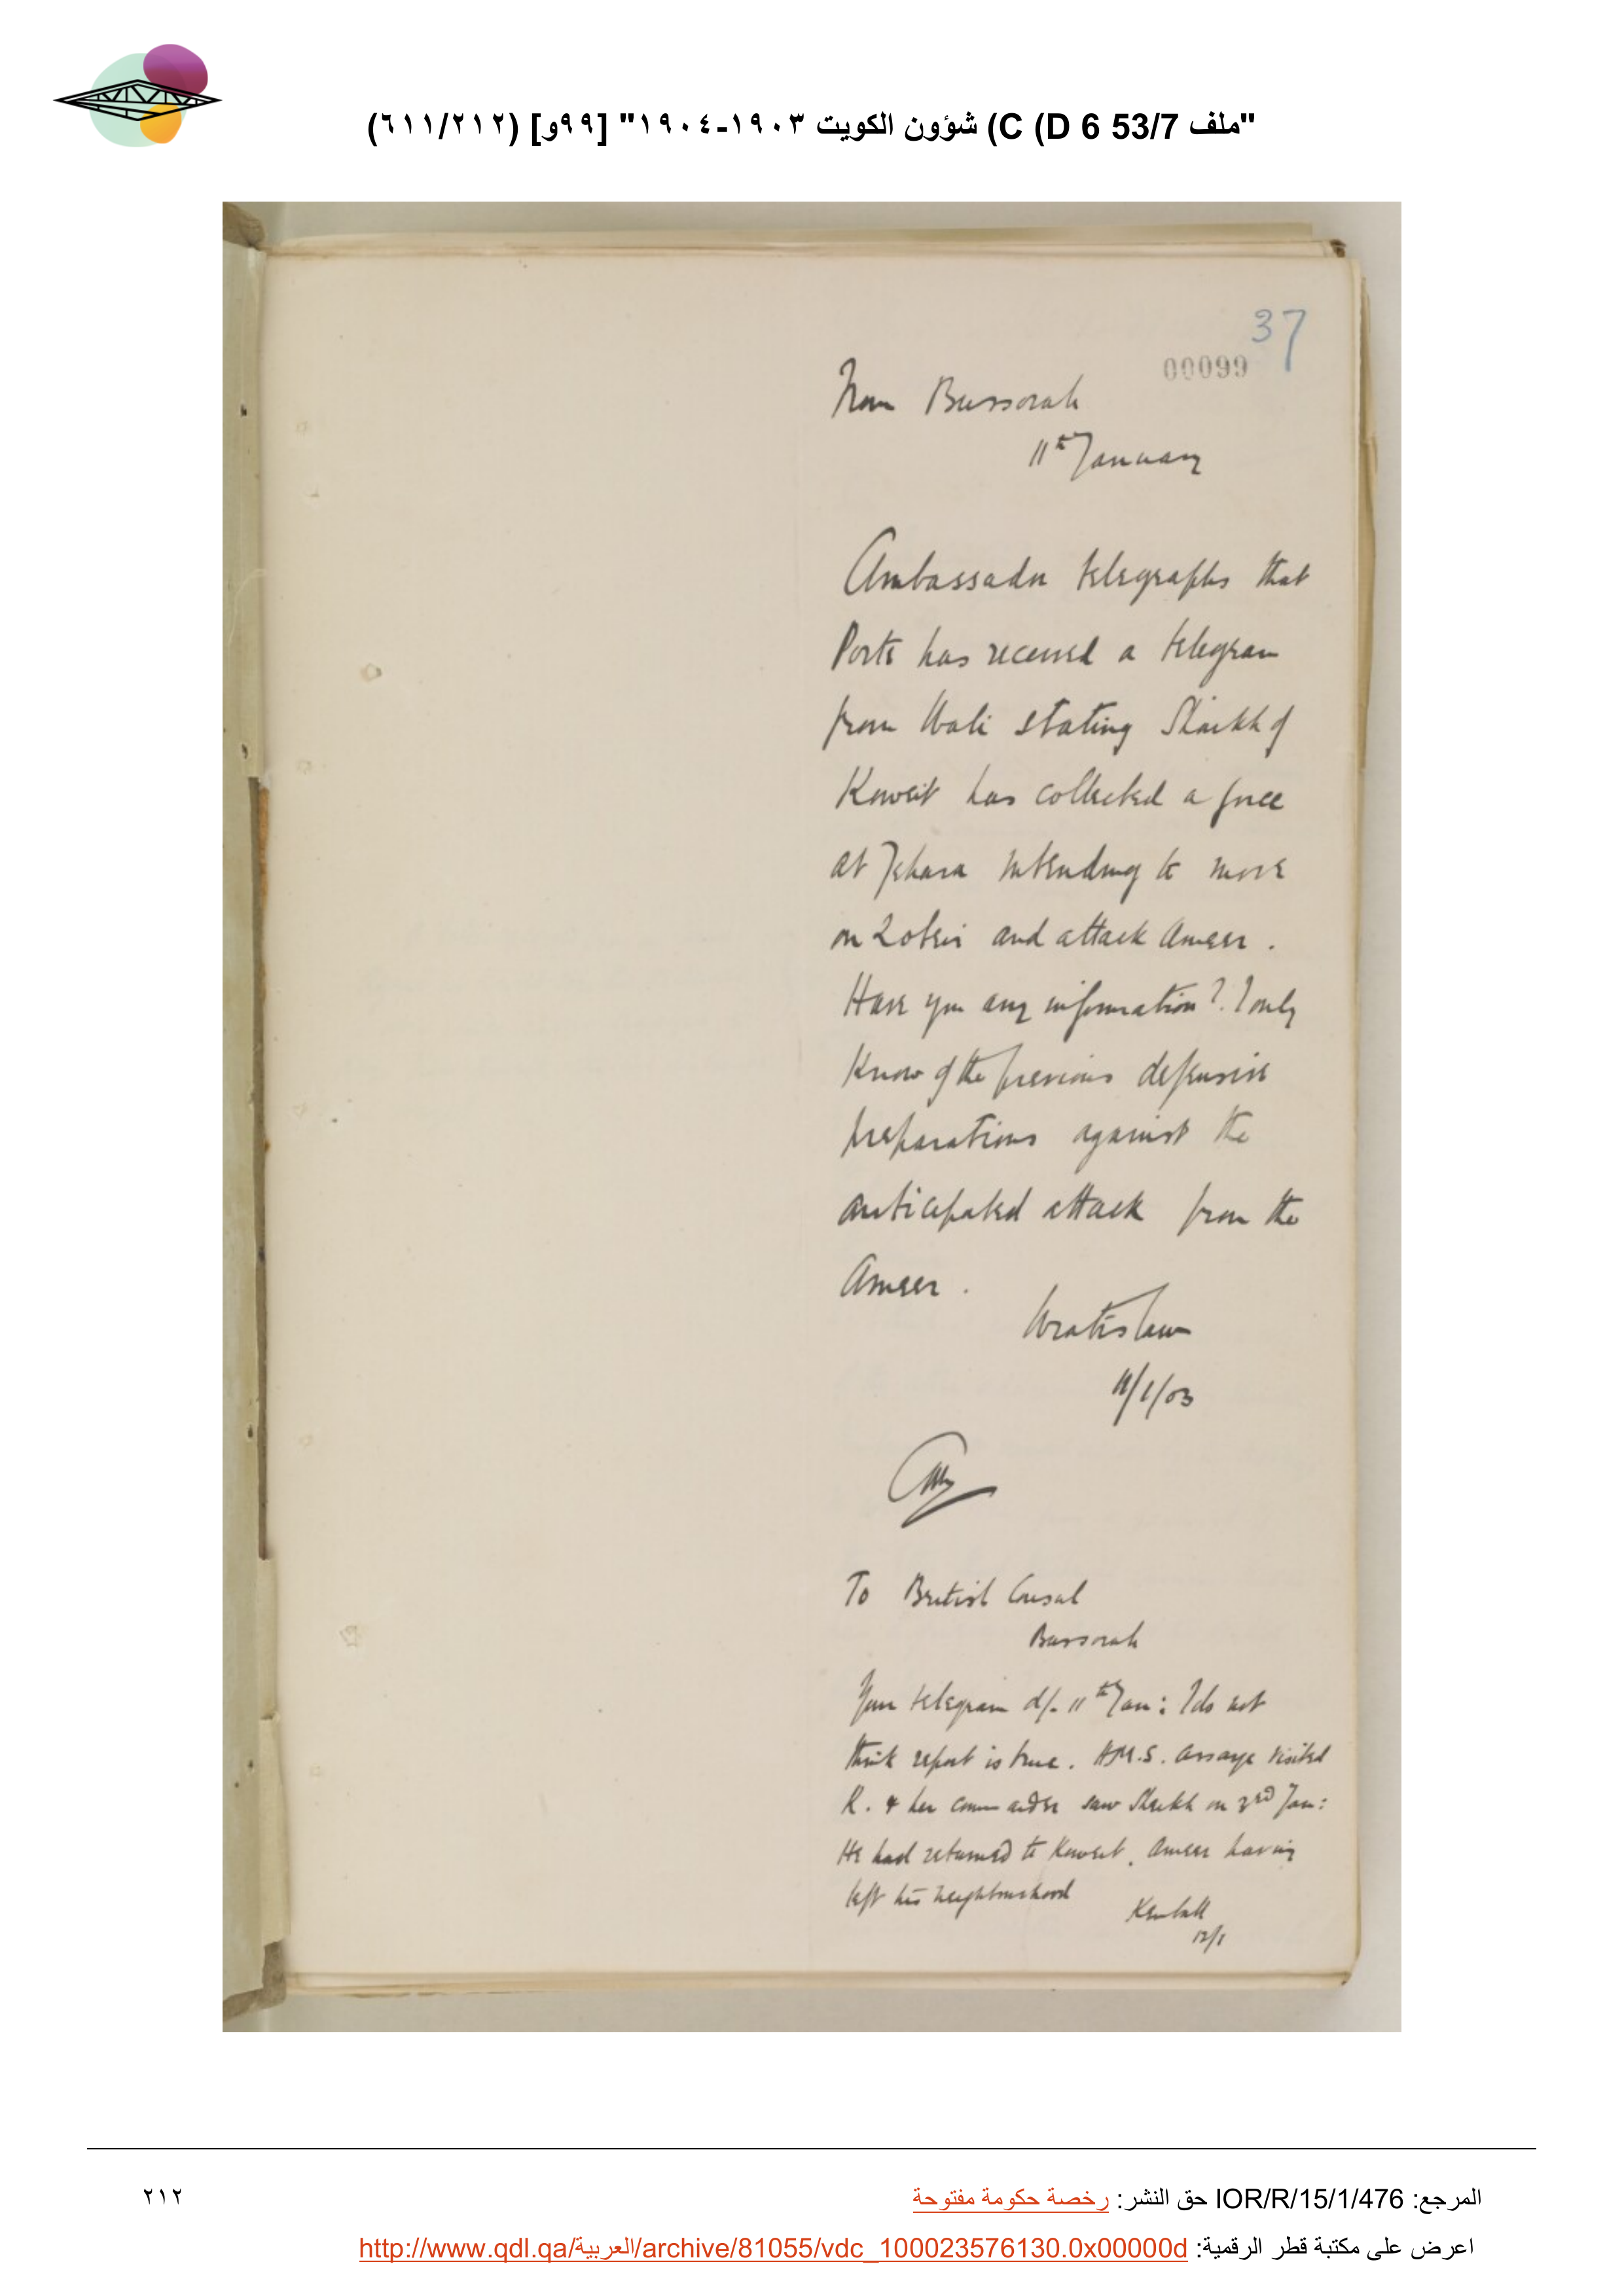 "ملف 53/7 C (D 6) شؤون الكويت ١٩٠٣-١٩٠٤" [٩٩و] (٦١١/٢١٢)
37
00099
From Bussorah
11th January
Ambassador telegraphs that
Porte has received a telegram
from Wali stating Shaikh of
Koweit has collected a force
at Jehara intending to move
on Zobeir and attack Ameer.
Have you any information? I only
know of the previous defensive
preparations against the
anticipated attack from the
Ameer.
Wratislaw
11/1/03
To British Consul
Bussorah
Your telegram d/- 11th Jan: I do not
think report is true. H.M.S. Assaye visited
K. & her commander saw Sheikh on 3rd Jan:
He had returned to Koweit. Ameer having
left his neighbourhood
Kemball
12/1
المرجع: IOR/R/15/1/476 حق النشر: رخصة حكومة مفتوحة
٢١٢
اعرض على مكتبة قطر الرقمية: http://www.qdl.qa/العربية/archive/81055/vdc_100023576130.0x00000d